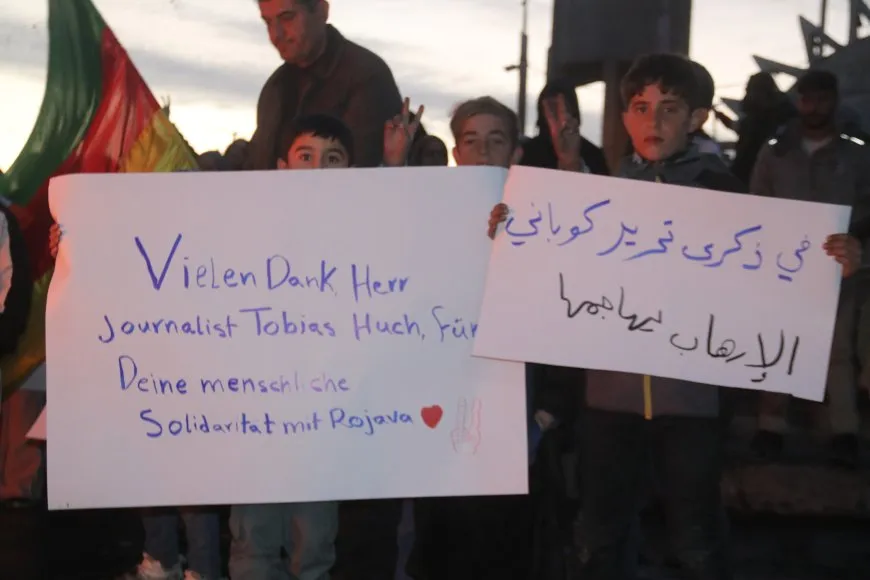 Vielen Dank, Herr
Journalist Tobias Huch, für
Deine menschliche
Solidarität mit Rojava
في ذكرى تحرير كوباني
الإرهاب يهاجمها